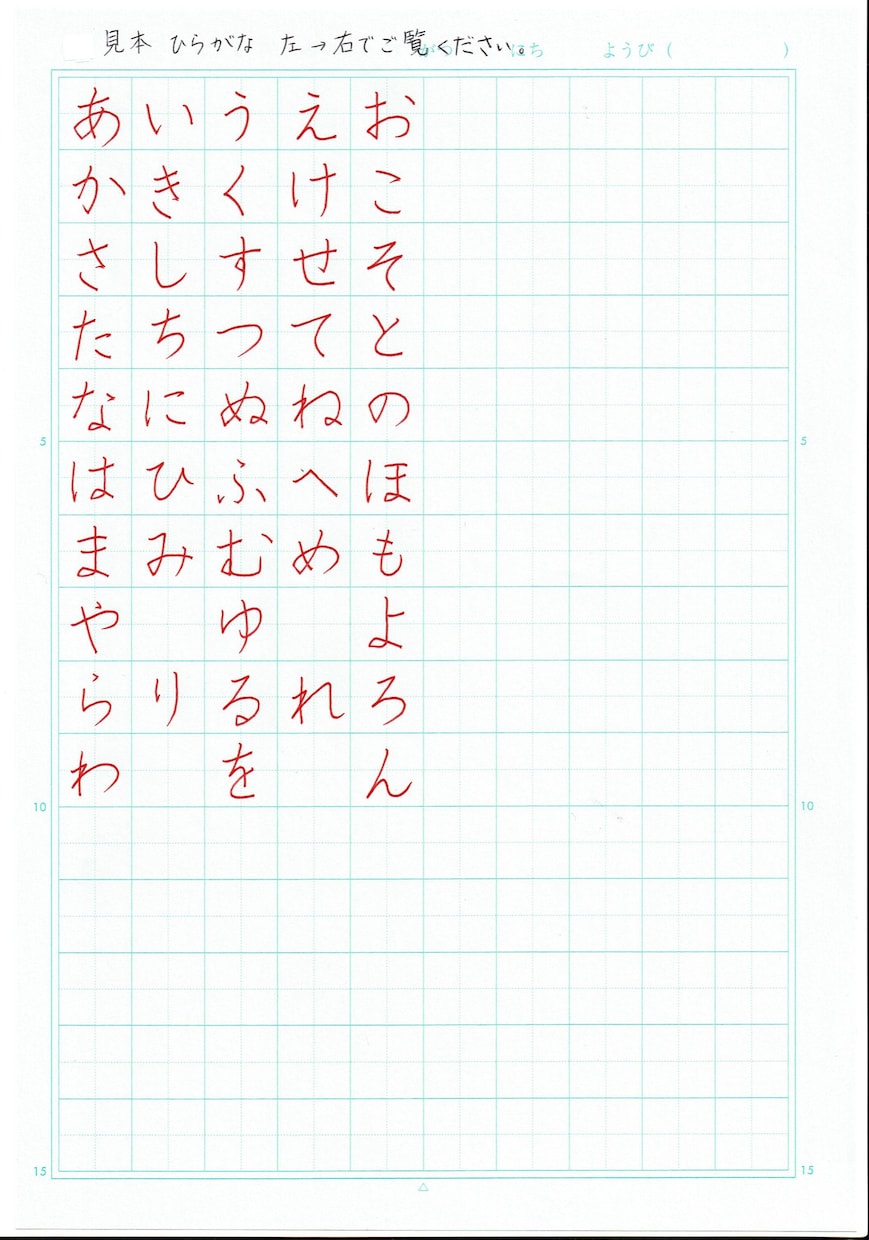 見本 ひらがな 左→右でご覧ください。
にち ようび ( )
あいうえお
かきくけこ
さしすせそ
たちつてと
なにぬねの 5 5
はひふへほ
まみむめも
や ゆ よ
らりるれろ
わ を ん
10 10
15 15